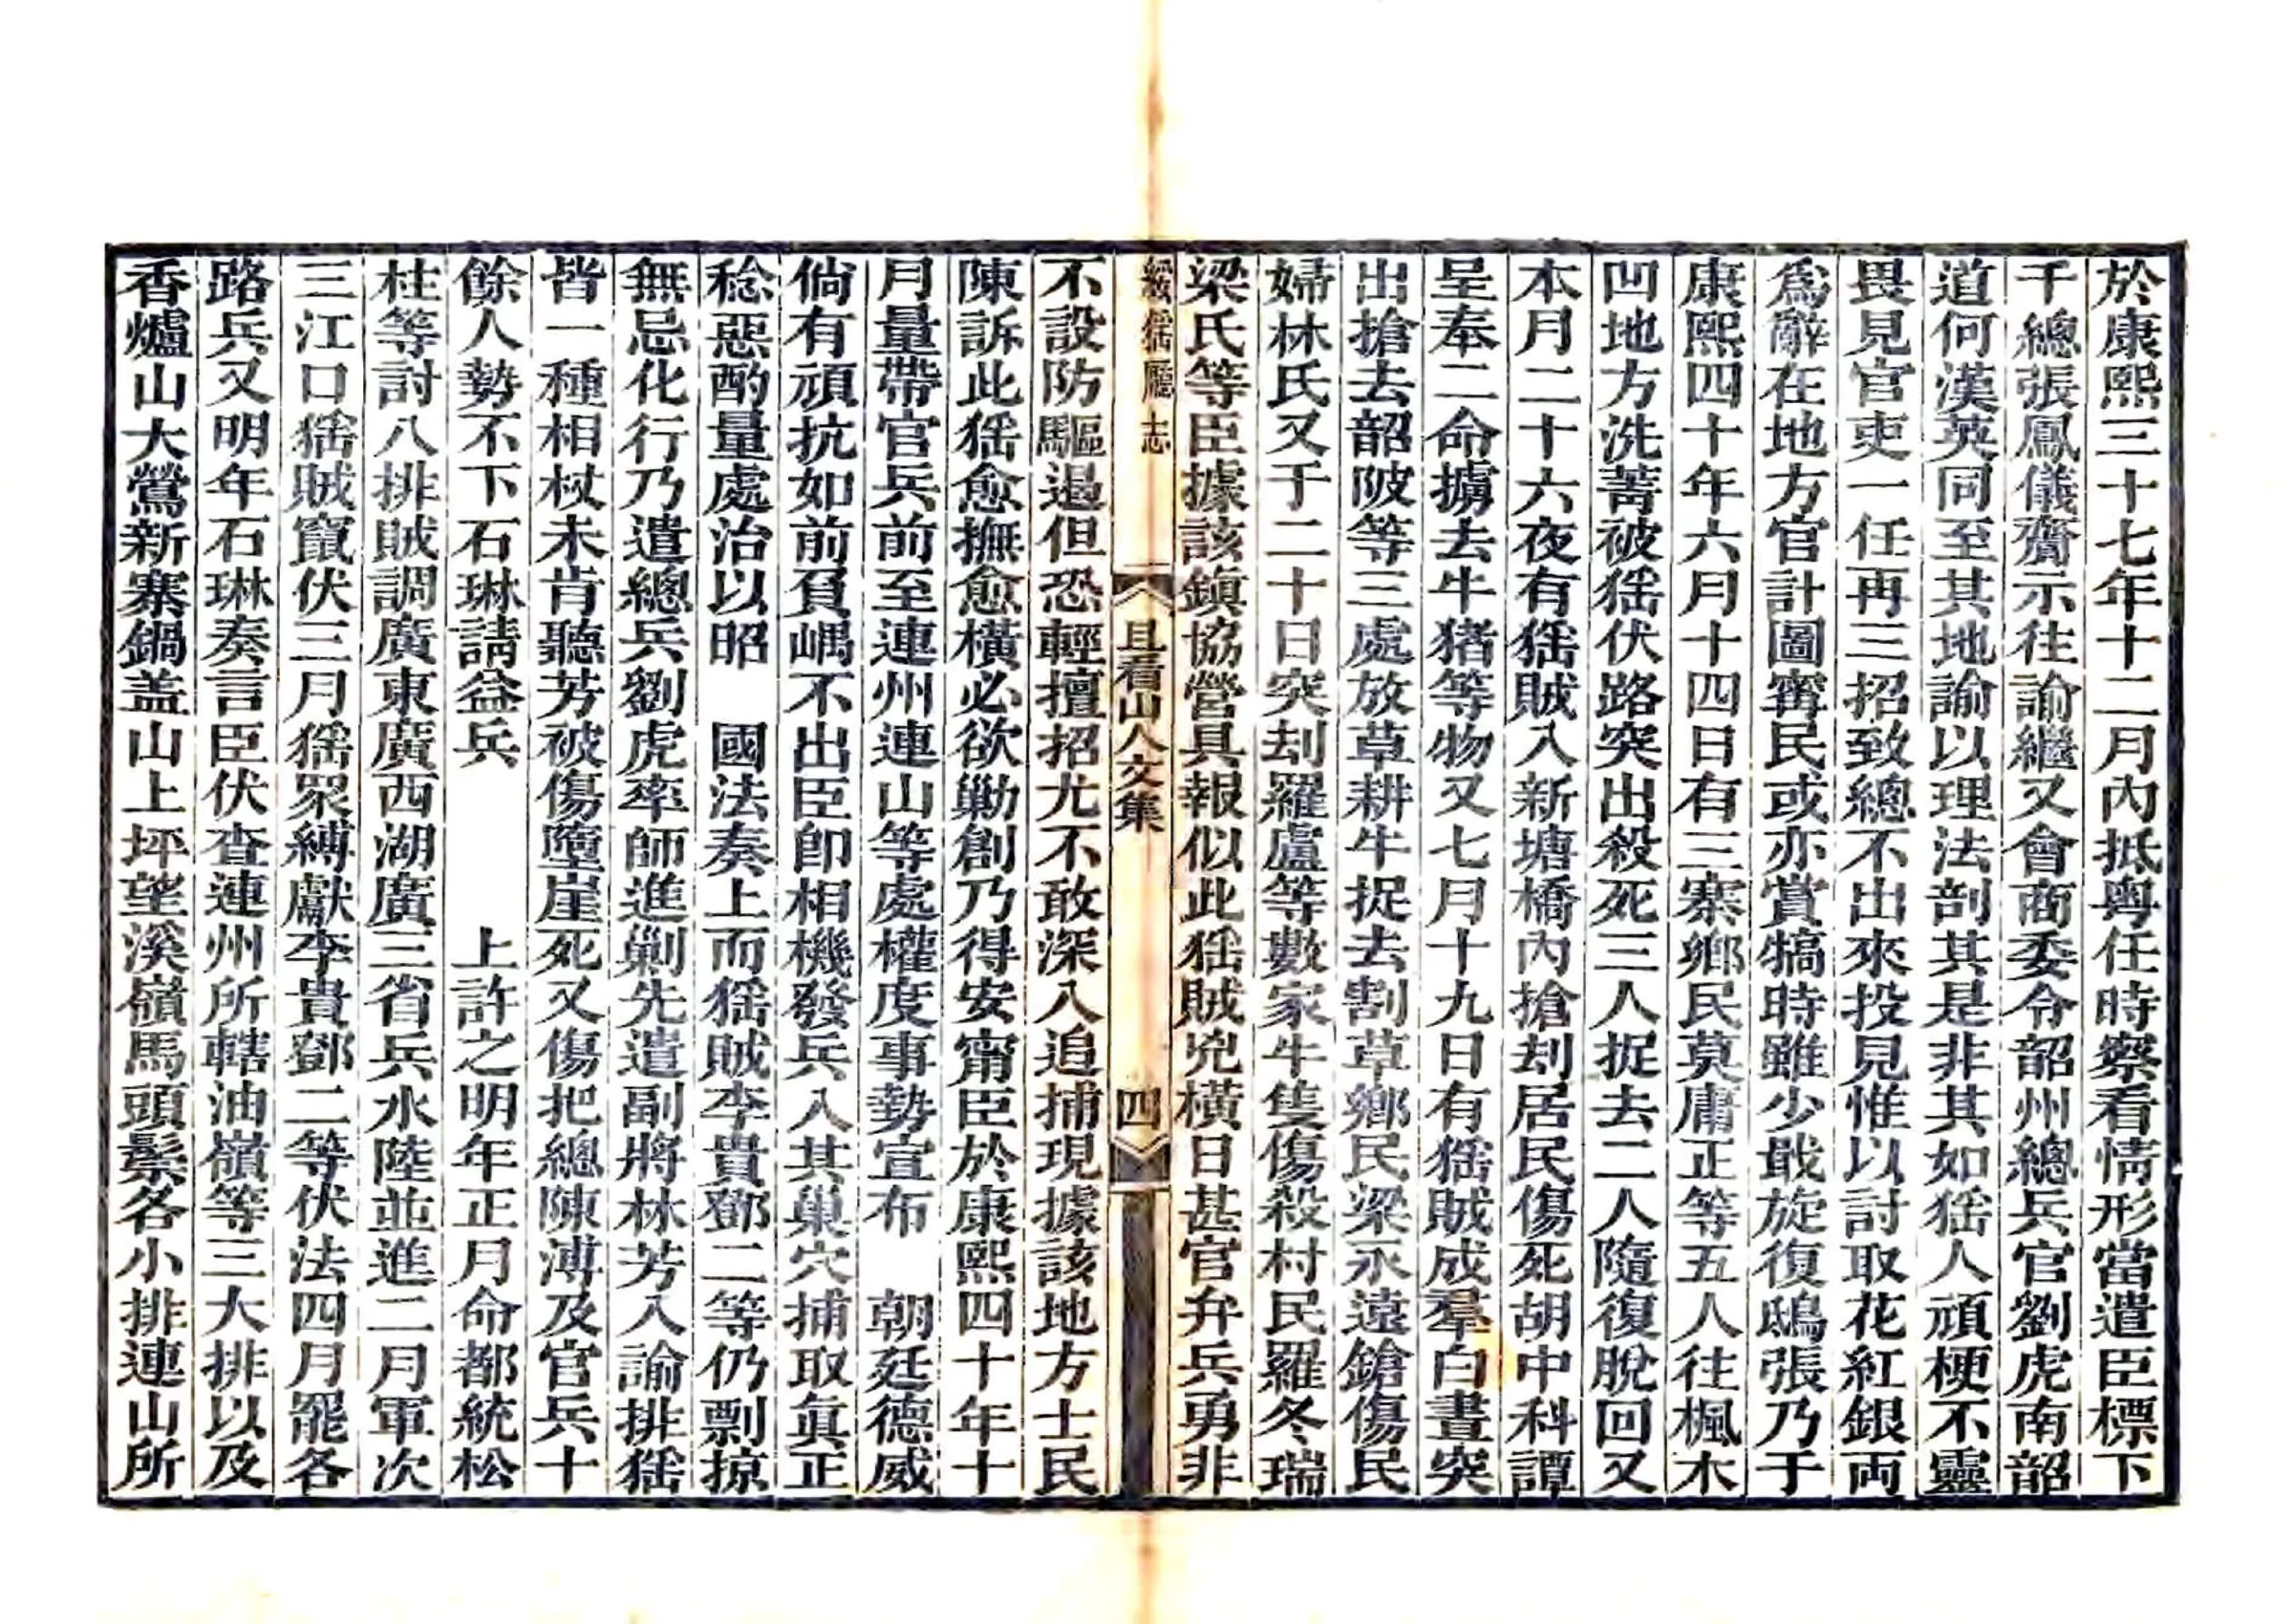 於康熙三十七年十二月內抵粵任時察看情形當遣臣標下
千總張鳳儀齎示往諭繼又會商委令韶州總兵官劉虎南韶
道何漢英同至其地諭以理法剖其是非其如猺人頑梗不靈
畏見官吏一任再三招致總不出來投見惟以討取花紅銀両
爲辭在地方官計圖甯民或亦賞犒時雖少戢旋復鴟張乃于
康熙四十年六月十四日有三寨鄉民莫庸正等五人往楓木
凹地方洗菁被猺伏路突出殺死三人捉去二人隨復脫回又
本月二十六夜有猺賊入新塘橋內搶刦居民傷死胡中科譚
呈奉二命擄去牛猪等物又七月十九日有猺賊成羣白晝突
出搶去韶陂等三處放草耕牛捉去割草鄉民梁永遠鎗傷民
婦林氏又于二十日突刦羅盧等數家牛隻傷殺村民羅冬瑞
梁氏等臣據該鎮協營具報似此猺賊兇橫日甚官弁兵勇非
綏猺廳志
且看山人文集
四
不設防驅遏但恐輕擅招尤不敢深入追捕現據該地方士民
陳訴此猺愈撫愈橫必欲勦創乃得安甯臣於康熙四十年十
月量帶官兵前至連州連山等處權度事勢宣布　朝廷德威
倘有頑抗如前負嵎不出臣卽相機發兵入其巢穴捕取眞正
稔惡酌量處治以昭　國法奏上而猺賊李貴鄧二等仍剽掠
無忌化行乃遣總兵劉虎率師進剿先遣副將林芳入諭排猺
皆一種相杖未肯聽芳被傷墮崖死又傷把總陳溥及官兵十
餘人勢不下石琳請益兵　　　上許之明年正月命都統松
柱等討八排賊調廣東廣西湖廣三省兵水陸並進二月軍次
三江口猺賊竄伏三月猺眾縛獻李貴鄧二等伏法四月罷各
路兵又明年石琳奏言臣伏查連州所轄油嶺等三大排以及
香爐山大鶯新寨鍋盖山上坪望溪嶺馬頭鬃各小排連山所